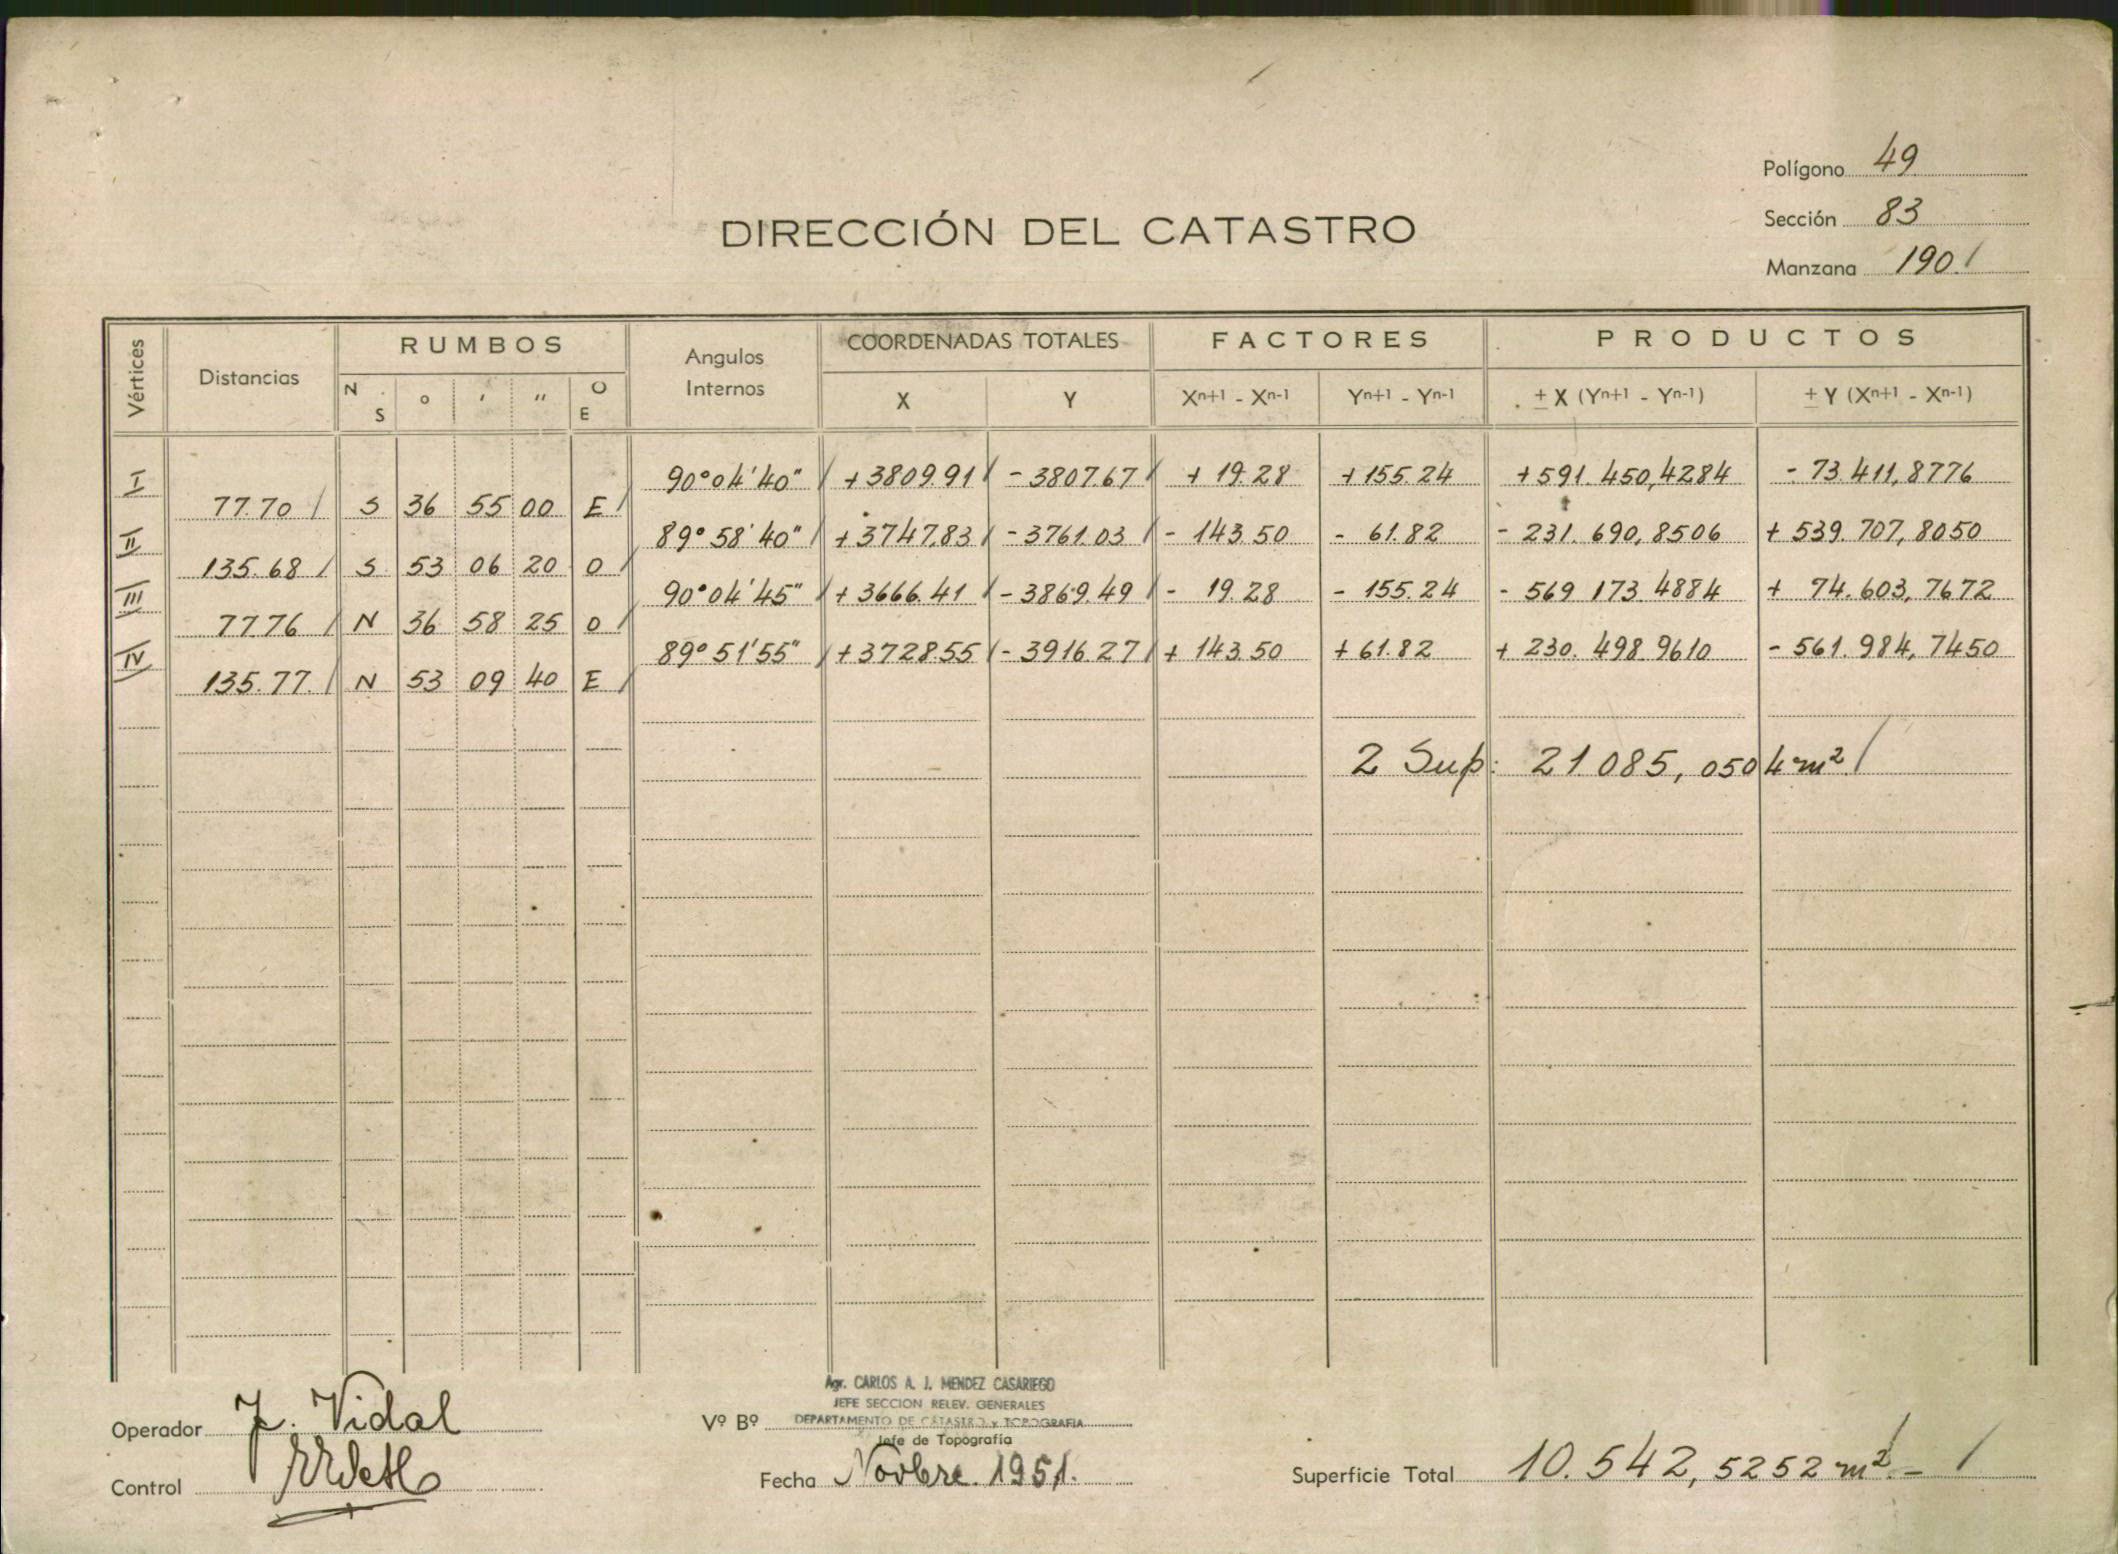 Polígono 49
Sección 83
Manzana 190
DIRECCIÓN DEL CATASTRO
Vértices Distancias RUMBOS Angulos Internos COORDENADAS TOTALES FACTORES PRODUCTOS
N S ° ' " O E X Y Xn+1 - Xn-1 Yn+1 - Yn-1 ± X (Yn+1 - Yn-1) ± Y (Xn+1 - Xn-1)
I 90°04'40" +3809.91 -3807.67 + 19.28 +155.24 +591.450,4284 - 73.411,8776
77.70 S 36 55 00 E
II 89°58'40" +3747,83 -3761.03 - 143.50 - 61.82 - 231.690,8506 + 539.707,8050
135.68 S 53 06 20 O
III 90°04'45" +3666.41 -3869.49 - 19.28 - 155.24 - 569 173.4884 + 74.603,7672
77.76 N 36 58 25 O
IV 89°51'55" +3728.55 -3916.27 + 143.50 +61.82 + 230.498.9610 - 561.984,7450
135.77 N 53 09 40 E
2 Sup: 21085,0504 m²
Agr. CARLOS A. J. MENDEZ CASARIEGO
JEFE SECCION RELEV. GENERALES
Vº Bº DEPARTAMENTO DE CATASTRO y TOPOGRAFIA
Jefe de Topografía
Operador J. Vidal
Control
Fecha Novbre. 1951.
Superficie Total 10.542,5252 m².-